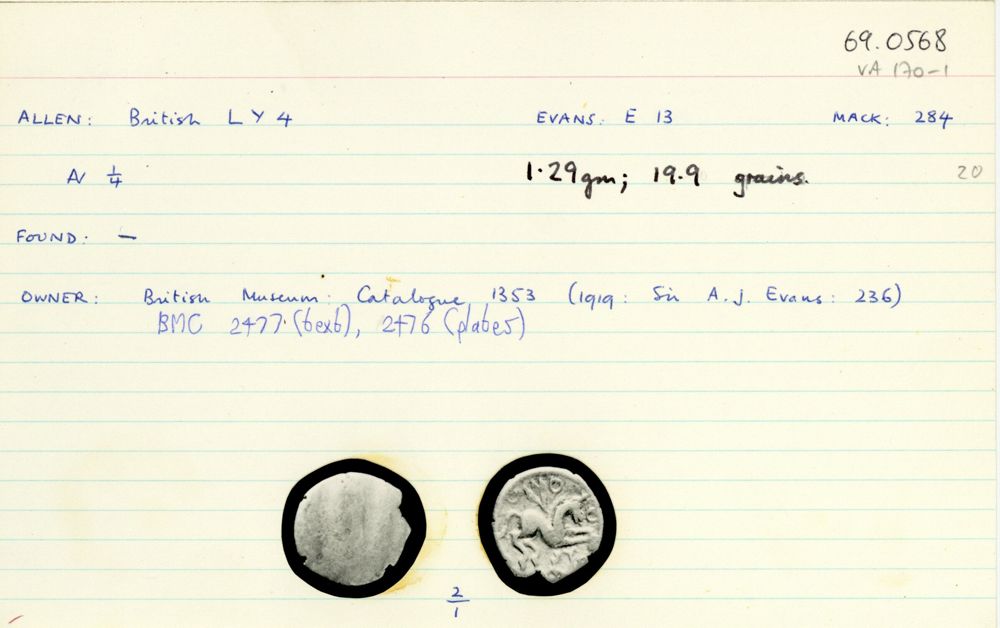 69.0568
VA 170-1
ALLEN: British L Y 4 EVANS: E 13 MACK: 284
AV 1/4 1.29gm; 19.9 grains. 20
FOUND: —
OWNER: British Museum: Catalogue 1353 (1919: Sir A.J. Evans: 236)
BMC 2477 (text), 2476 (plates)
2/1